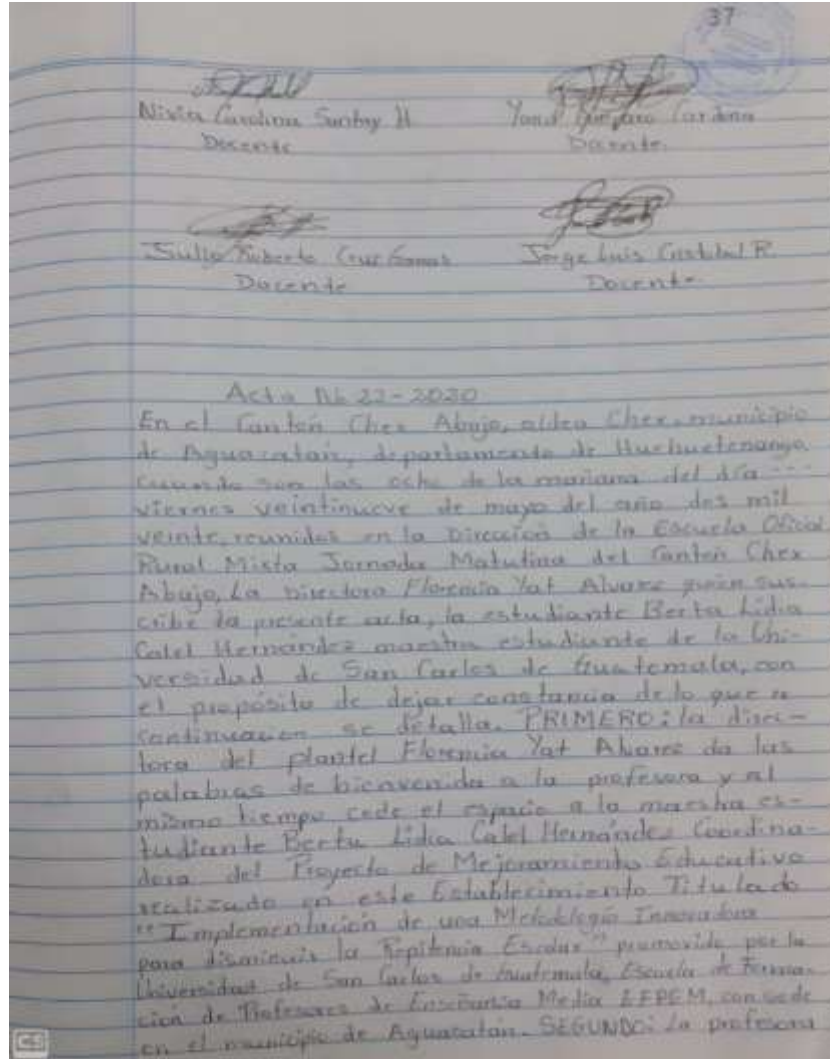 37
Nivia Carolina H
Docente
Docente
Julio Roberto Cruz
Docente
Jorge Luis Cristobal R.
Docente
Acta No. 22-2020
En el Cantón Chex Abajo, aldea Chex, municipio
de Aguacatán, departamento de Huehuetenango
cuando son las ocho de la mañana del día ---
viernes veintinueve de mayo del año dos mil
veinte, reunidos en la Dirección de la Escuela Oficial
Rural Mixta Jornada Matutina del Cantón Chex
Abajo, La Directora Florencia Yat Alvarez quien sus-
cribe la presente acta, la estudiante Berta Lidia
Calel Hernández maestra estudiante de la Uni-
versidad de San Carlos de Guatemala, con
el propósito de dejar constancia de lo que a
continuación se detalla. PRIMERO: la direc-
tora del plantel Florencia Yat Alvarez da las
palabras de bienvenida a la profesora y al
mismo tiempo cede el espacio a la maestra es-
tudiante Berta Lidia Calel Hernández Coordina-
dora del Proyecto de Mejoramiento Educativo
realizado en este Establecimiento Titulado
"Implementación de una Metodología Innovadora
para disminuir la Repitencia Escolar" promovido por la
Universidad de San Carlos de Guatemala, Escuela de Forma-
ción de Profesores de Enseñanza Media EFPEM, con sede
en el municipio de Aguacatán. SEGUNDO: La profesora
CS